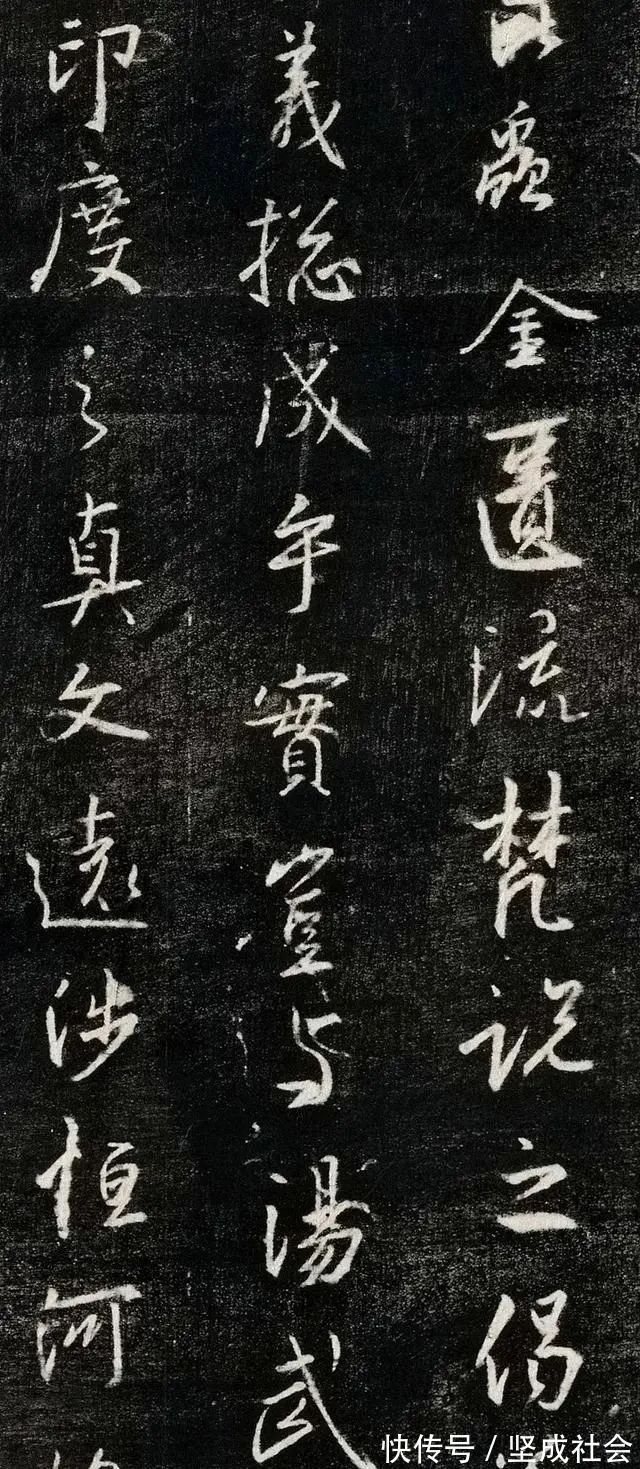 蟲金匱流梵説之偈
義揔成乎實豈与湯武
印度之真文遠涉恒河
快传号 / 坚成社会